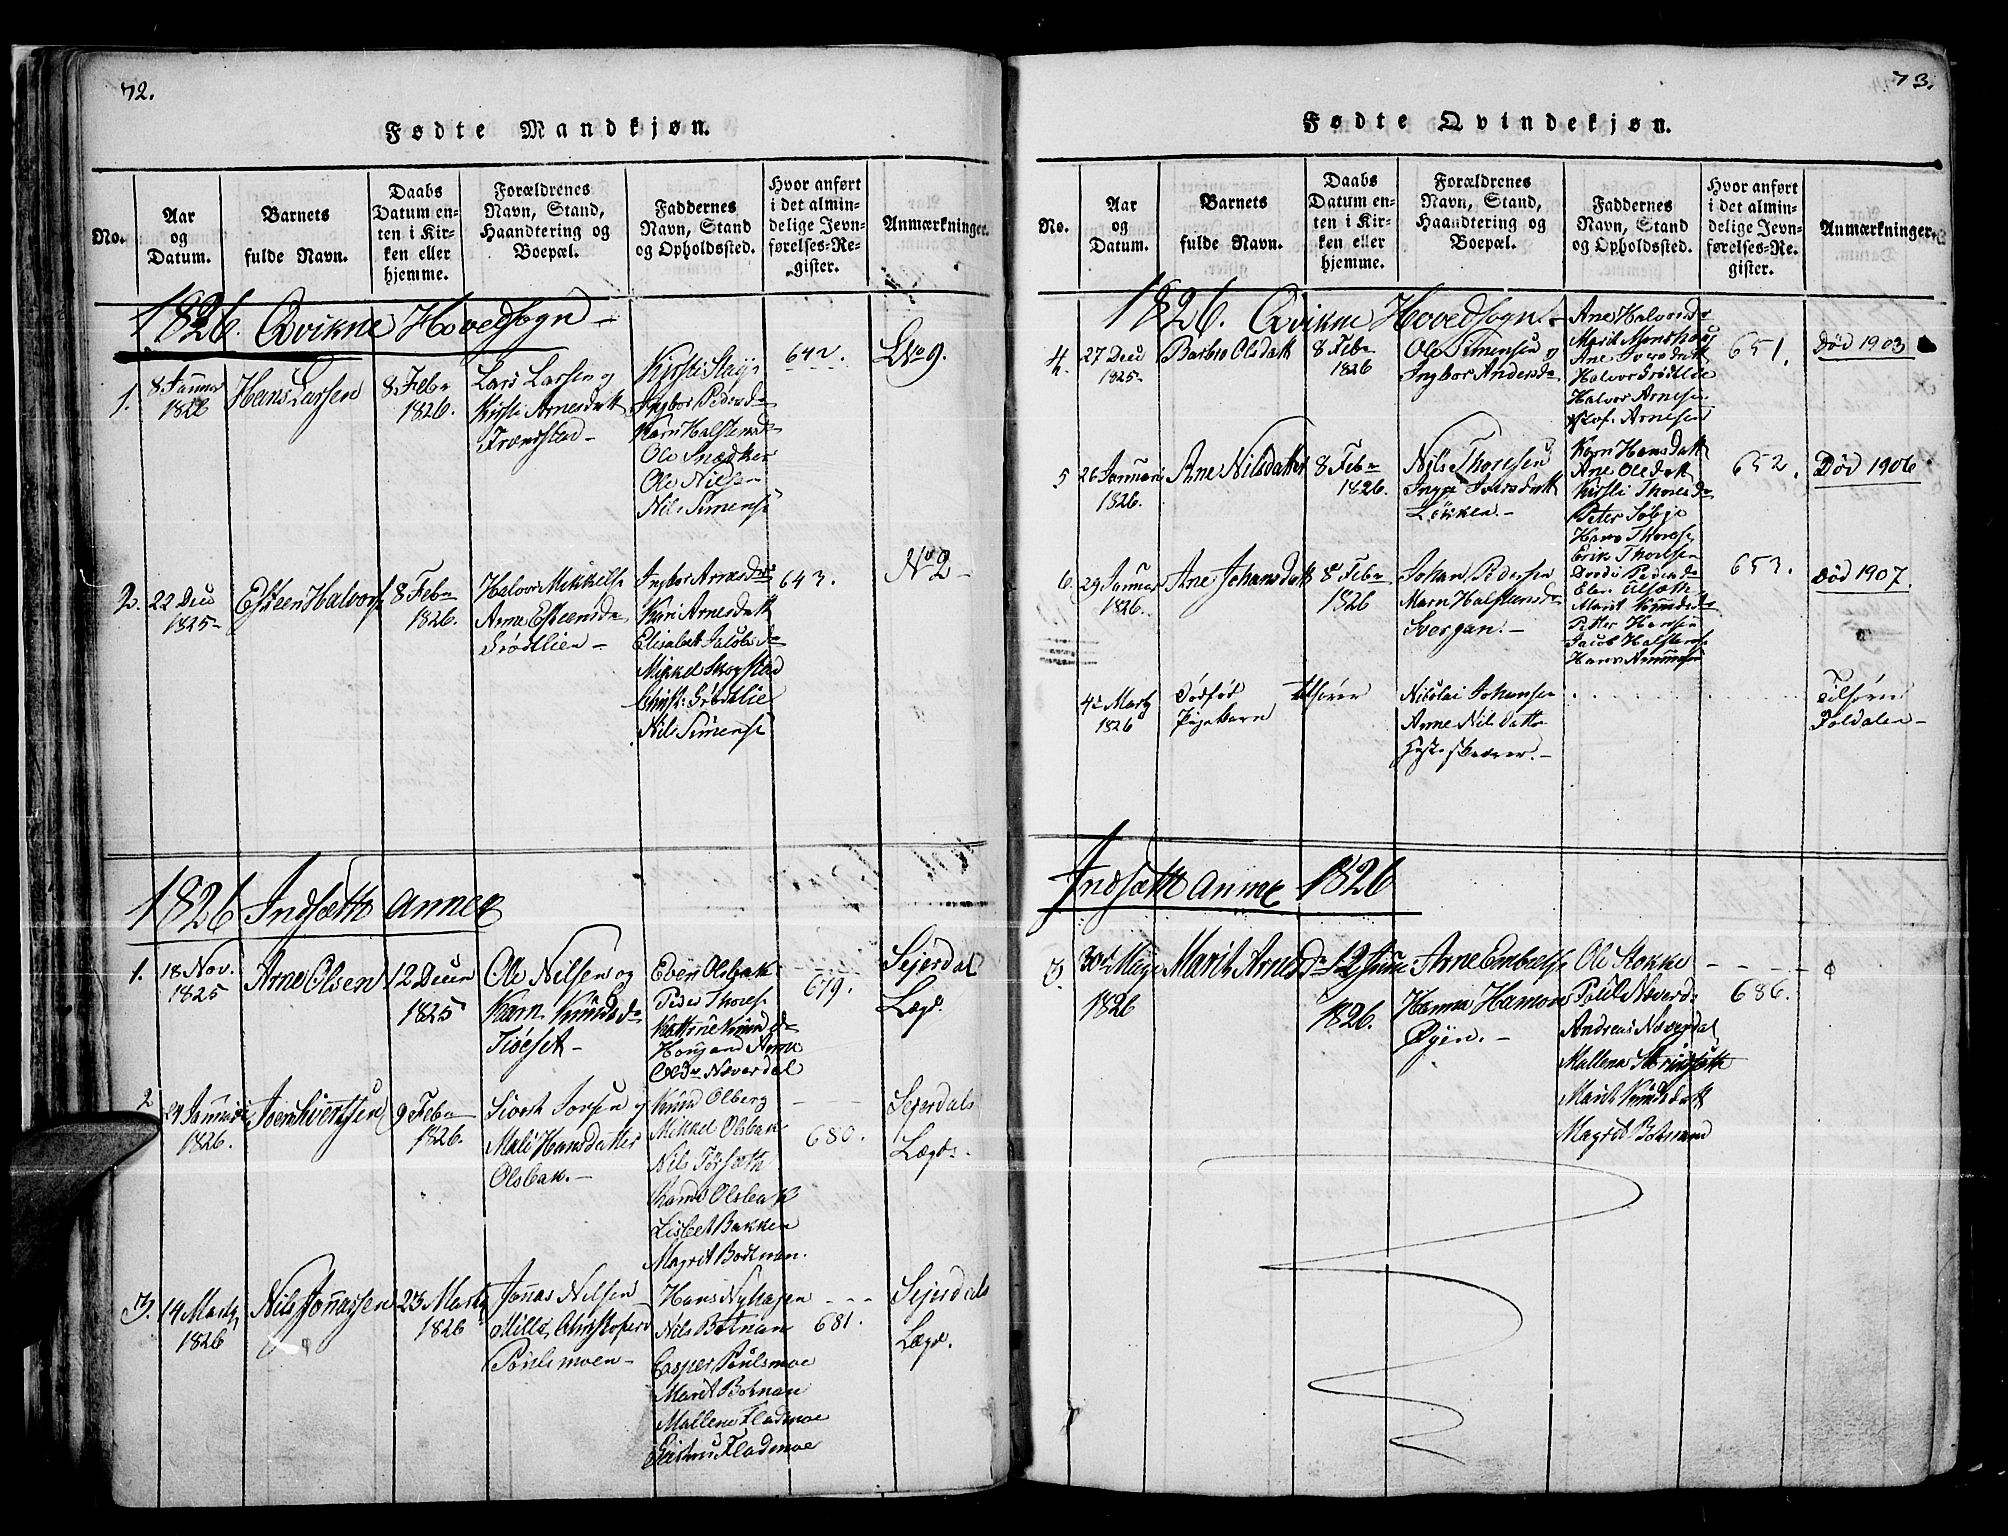 72.
Fødte Mandkjøn.
No.
Aar
og
Datum.
Barnets
fulde Navn.
Daabs
Datum en-
ten i Kir-
ken eller
hjemme.
Forældrenes
Navn, Stand,
Haandtering og
Boepæl.
Faddernes
Navn, Stand
og Opholdssted.
Hvor anført
i det almin-
delige Jevn-
førelses-Re-
gister.
Anmærkninger.
1826. Qvikne Hovedsogn -
1.
8 Januar
1826
Hans Larsen
8 Feb
1826.
Lars Larsen og
Kirsti Arnesdatt
Frændstad -
Kirsti
Ingbor Pedersd
Karn Halstensd
Ole Snedker
Ole Nils
Nils Simens
642.
No 9.
2.
22 Dec
1825-
Esteen Halvors
8 Feb
1826.
Halvor Mikkels
Arne Esteensd
Grodtlien -
Ingbor Arnesd
Kari Arnesdatt
Elisabett Jacobsd
Mikkel Skogstad
Christ: Grodtlie
Nils Simens
643.
No 2 -
1826 Indsætt annex
1.
18 Nov.
1825
Arne Olsen
12 Decem
1825
Ole Nilsen og
Karn Knudsd
Tiöeset -
Even Olsbak
Peder Thores
Kattrine Knudsd
Arne
Næverdal
679.
Sejerdal
Lægd.
2
29 Januar
1826.
9 Feb
1826.
Sivert Jorsen og
Mali Hansdatter
Olsbak. -
Knud Olberg
Mikkel Olsbak
Nils
Olsbak
Lisbet Bakken
Magrit Bodtman.
680.
Sejerdals
Lægd.
3.
14 Martz
1826
Nils Jonassen
23 Martz
1826
Jonas Nilsen
Mille Christophersd
Poulsmoen -
Hans Nyhagen
Nils Botnan
Casper Poulsmoe
Marit Botnan
Mallene Fladmoe
Fladmoe
681.
Sejerdals
Lægd.
73.
Fødte Qvindekjøn.
No.
Aar
og
Datum.
Barnets
fulde Navn.
Daabs
Datum en-
ten i Kir-
ken eller
hjemme.
Forældrenes
Navn, Stand,
Haandtering og
Boepæl.
Faddernes
Navn, Stand
og Opholdssted.
Hvor anført
i det almin-
delige Jevn-
førelses-Re-
gister.
Anmærkninger.
1826. Qvikne Hovedsogn. -
4.
27 Dec
1825-
Barbro Olsdatt
8 Feb
1826
Ole Simensen og
Ingbor Andersd
Ane Halvorsd
Marit
Ane
Halvor Grodtlie
Halvor Arnesen
Arnesen
651.
Død 1903
5
26 Januar
1826.
Ane Nilsdatter
8 Feb
1826.
Nils Thoresen
Inger Iversdatt
Løkken. -
Karn Hansdatt
Ane Olsdatt
Kirsti Thoresd
Peter
Hans Thores
Erik Thoresen
652.
Død 1906
6.
29 Januar
1826.
Ane Johansdatt
8 Feb
1826
Johan Pedersen
Marn Halstensd
Svergan. -
Dordi Pedersd
Marit Knudsd
Petter Hansen
Jacob Halstens
Hans Amundsen
653.
død 1907.
4de Martz
1826
Dødfød
Pigebarn
Nikolai Johansen
Arne Nilsdatt
Tilhører
Foldalen -
Indsætt annex 1826
3.
30 Maye
1826
Marit Arnesd
12 Juni
1826.
Arne Embrets
Hanna Hansen
Øyen. -
Ole Stokke
Næverd
Andreas Næverdal
Mallene
Marit Knudsdatt
Magrit Botnan
686.